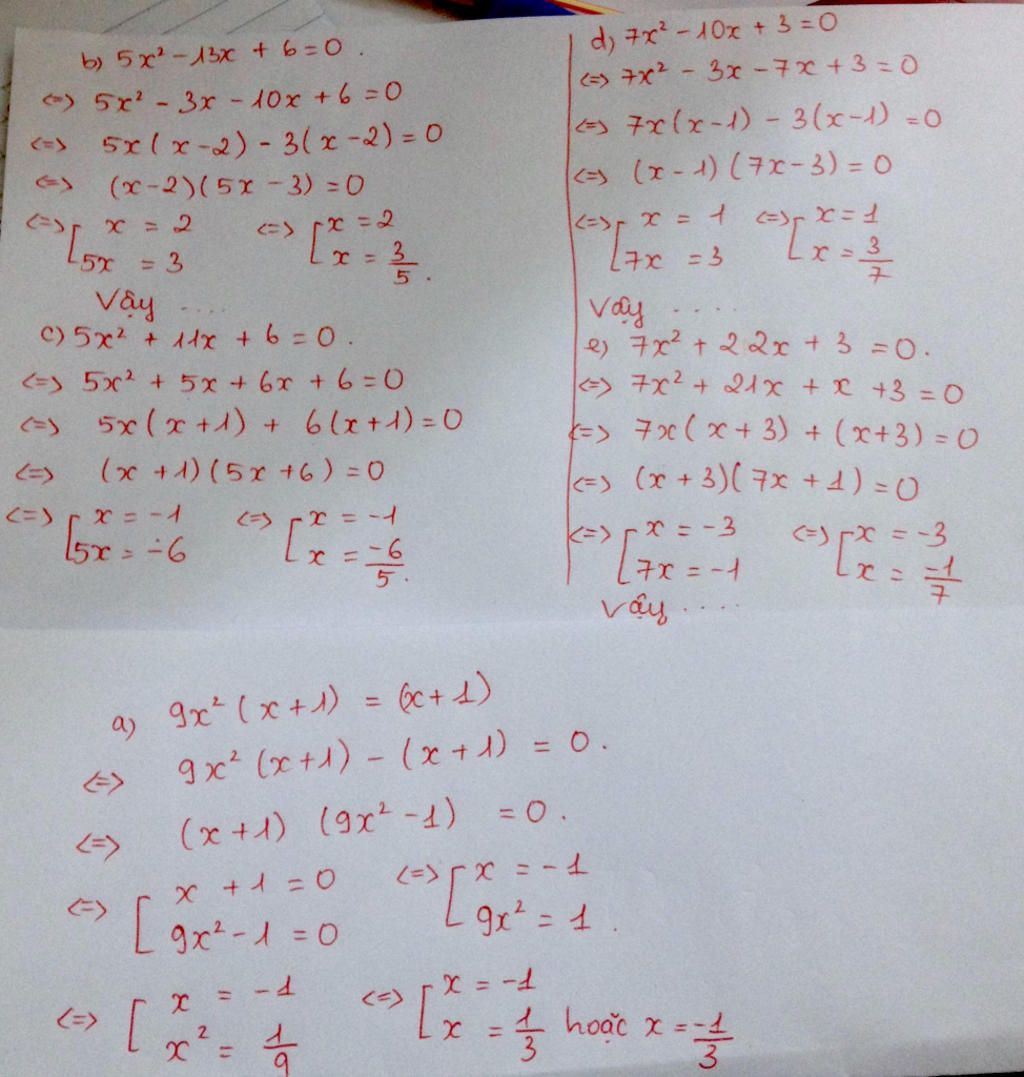 b) 5x² - 13x + 6 = 0.
<=> 5x² - 3x - 10x + 6 = 0
<=> 5x(x-2) - 3(x-2) = 0
<=> (x-2)(5x-3) = 0
<=> [ x = 2 <=> [ x = 2
5x = 3 x = 3/5.
Vậy ....
c) 5x² + 11x + 6 = 0.
<=> 5x² + 5x + 6x + 6 = 0
<=> 5x(x+1) + 6(x+1) = 0
<=> (x+1)(5x+6) = 0
<=> [ x = -1 <=> [ x = -1
5x = -6 x = -6/5.
d) 7x² - 10x + 3 = 0
<=> 7x² - 3x - 7x + 3 = 0
<=> 7x(x-1) - 3(x-1) = 0
<=> (x-1)(7x-3) = 0
<=> [ x = 1 <=> [ x = 1
7x = 3 x = 3/7
Vậy ....
e) 7x² + 22x + 3 = 0.
<=> 7x² + 21x + x + 3 = 0
<=> 7x(x+3) + (x+3) = 0
<=> (x+3)(7x+1) = 0
<=> [ x = -3 <=> [ x = -3
7x = -1 x = -1/7
Vậy ....
a) 9x²(x+1) = (x+1)
<=> 9x²(x+1) - (x+1) = 0.
<=> (x+1) (9x²-1) = 0.
<=> [ x + 1 = 0 <=> [ x = -1
9x² - 1 = 0 9x² = 1.
<=> [ x = -1 <=> [ x = -1
x² = 1/9 x = 1/3 hoặc x = -1/3